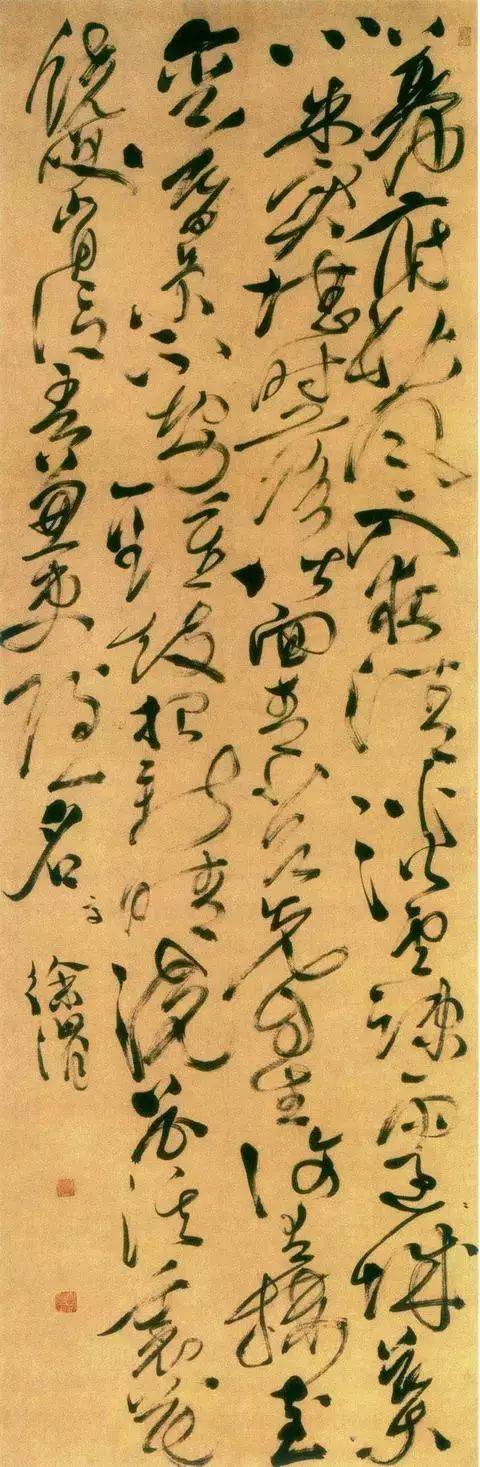 幕府秋風入夜清淡雲疎雨過城葉
心朱實堪時落階面青苔先自生復有樓臺
含暮景不勞鐘鼓報新晴浣花溪裏花
饒咲肯信吾兼吏隱名高
徐渭